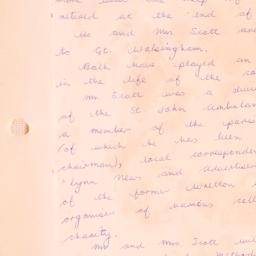 retired at the end of
Mr and Mrs Scott are
to Gt. Walsingham.
Both have played an
in the life of the
Mr Scott was a
of the St. John Ambulan
a member of the paris
(of which he has been
chairman), local corresponden
"Lynn News and Advertiser
of the former
organiser of various
charity.
Mr and Mrs Scott